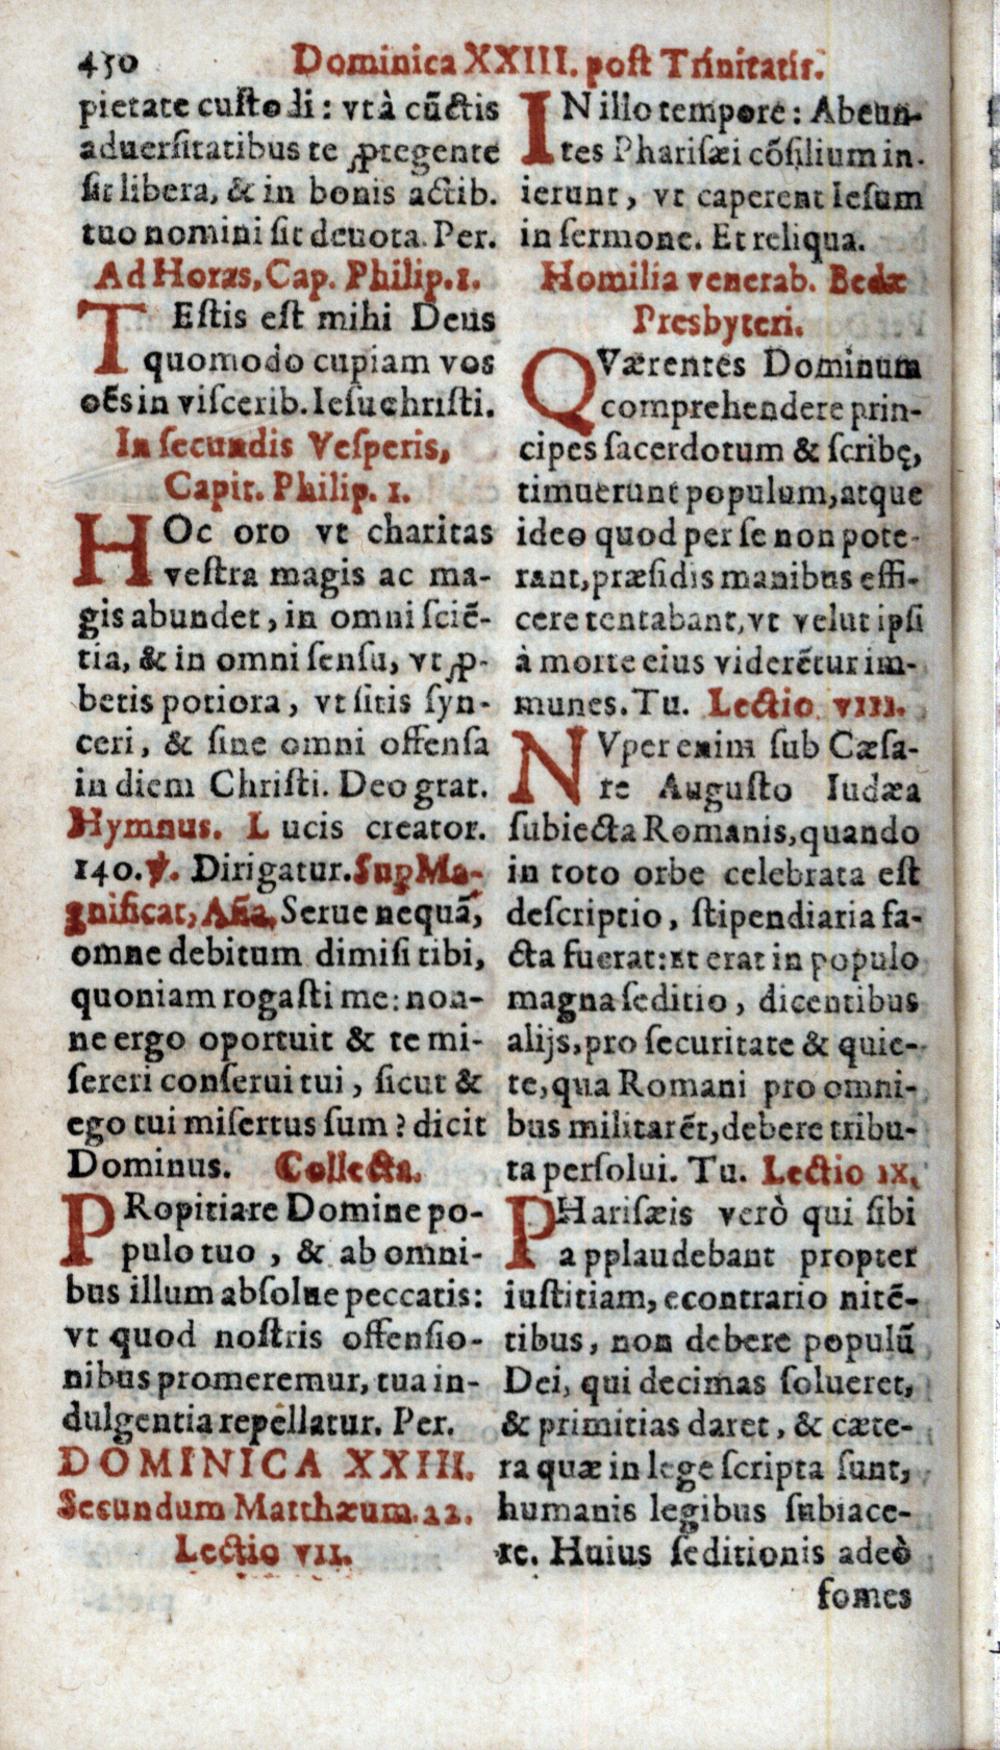 450 Dominica XXIII. post Trinitatis.
pietate custodi: vt à cũctis
aduersitatibus te ꝓtegente
sit libera, & in bonis actib.
tuo nomini sit deuota. Per.
Ad Horas, Cap. Philip. 1.
TEstis est mihi Deus
quomodo cupiam vos
oẽs in viscerib. Iesu christi.
In secundis Vesperis,
Capit. Philip. 1.
HOc oro vt charitas
vestra magis ac ma-
gis abundet, in omni sciẽ-
tia, & in omni sensu, vt ꝓ-
betis potiora, vt sitis syn-
ceri, & sine omni offensa
in diem Christi. Deo grat.
Hymnus. Lucis creator.
140. ℣. Dirigatur. Sup Ma-
gnificat, Aña. Serue nequã,
omne debitum dimisi tibi,
quoniam rogasti me: non-
ne ergo oportuit & te mi-
sereri conserui tui, sicut &
ego tui misertus sum? dicit
Dominus. Collecta.
PRopitiare Domine po-
pulo tuo, & ab omni-
bus illum absolue peccatis:
vt quod nostris offensio-
nibus promeremur, tua in-
dulgentia repellatur. Per.
DOMINICA XXIII.
Secundum Matthæum. 22.
Lectio VII.
IN illo tempore: Abeun-
tes Pharisæi cõsilium in-
ierunt, vt caperent Iesum
in sermone. Et reliqua.
Homilia venerab. Bedæ
Presbyteri.
QVærentes Dominum
comprehendere prin-
cipes sacerdotum & scribę,
timuerunt populum, atque
ideo quod per se non pote-
rant, præsidis manibus effi-
cere tentabant, vt velut ipsi
à morte eius viderẽtur im-
munes. Tu. Lectio VIII.
NVper enim sub Cæsa-
re Augusto Iudæa
subiecta Romanis, quando
in toto orbe celebrata est
descriptio, stipendiaria fa-
cta fuerat: et erat in populo
magna seditio, dicentibus
alijs, pro securitate & quie-
te, qua Romani pro omni-
bus militarẽt, debere tribu-
ta persolui. Tu. Lectio IX.
PHarisæis verò qui sibi
applaudebant propter
iustitiam, econtrario nitẽ-
tibus, non debere populũ
Dei, qui decimas solueret,
& primitias daret, & cæte-
ra quæ in lege scripta sunt,
humanis legibus subiace-
re. Huius seditionis adeò
fomes